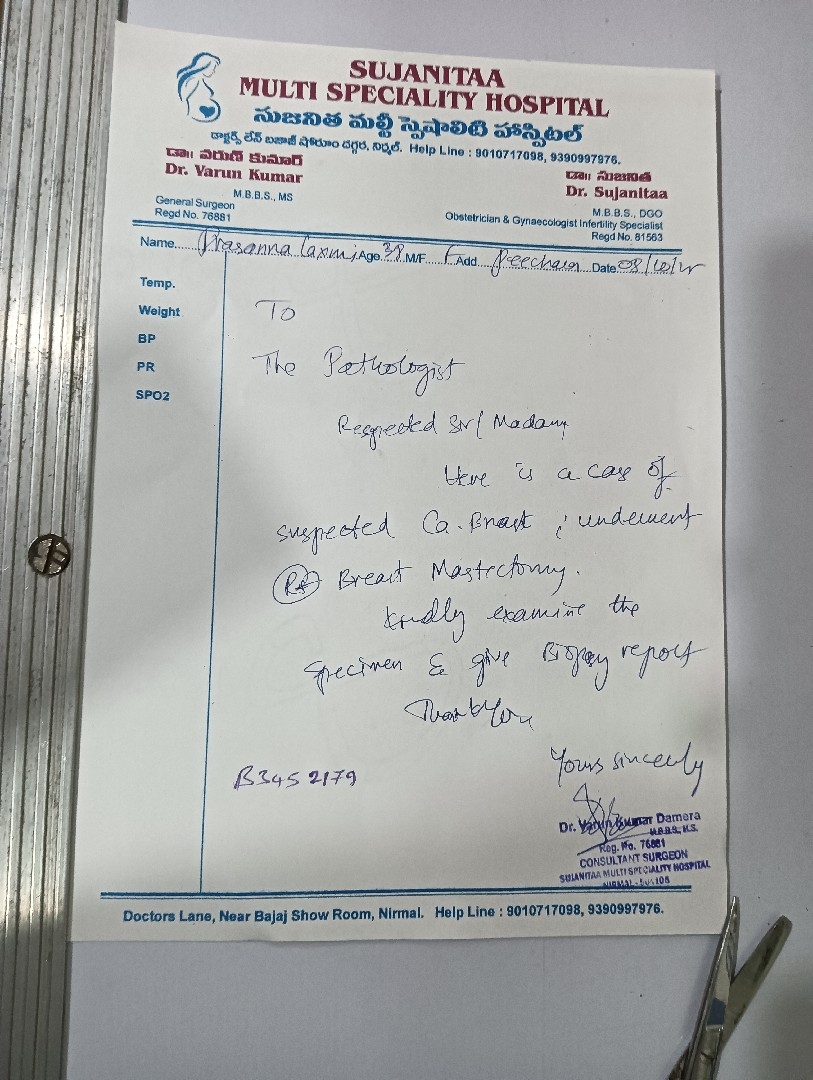 SUJANITAA
MULTI SPECIALITY HOSPITAL
సుజనిత మల్టీ స్పెషాలిటి హాస్పిటల్
డాక్టర్స్ లేన్ బజాజ్ షోరూం దగ్గర, నిర్మల్. Help Line : 9010717098, 9390997976.
డా॥ వరుణ్ కుమార్
Dr. Varun Kumar
M.B.B.S., MS
General Surgeon
Regd No. 76881
డా॥ సుజనిత
Dr. Sujanitaa
M.B.B.S., DGO
Obstetrician & Gynaecologist Infertility Specialist
Regd No. 81563
Name..... Prasanna Laxmi Age 38 M/F F Add. Date
Temp.
Weight
BP
PR
SPO2
To
The Pathologist
Respected Sir/ Madam,
Here is a case of
suspected Ca. Breast ; underwent
Rt Breast Mastectomy.
Kindly examine the
specimen & give Biopsy report
Thank You
Yours sincerely
B345 2179
Dr. Varun Kumar Damera
M.B.B.S., M.S.
Reg. No. 76881
CONSULTANT SURGEON
SUJANITAA MULTI SPECIALITY HOSPITAL
NIRMAL
Doctors Lane, Near Bajaj Show Room, Nirmal. Help Line : 9010717098, 9390997976.